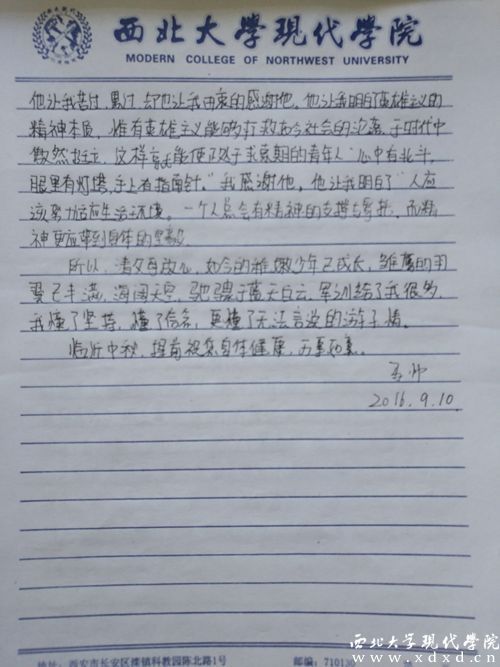 西北大學現代學院
MODERN COLLEGE OF NORTHWEST UNIVERSITY
他让我苦过,累过,却也让我由衷的感谢他。他让我明白英雄主义的
精神本质,惟有英雄主义能够打救如今社会的沦落,于时代中
傲然挺立,这样才能使正处于求索期的青年人“心中有北斗,
眼里有灯塔,手上有指南针。”我感谢他,他让我明白了人应
该努力适应生活环境。一个人总会有精神的支撑与寄托,而精
神更应带到身体的
所以,请父母放心,如今的稚嫩少年已成长,雏鹰的羽
翼已丰满,海阔天空,驰骋于蓝天白云,军训给了我很多,
我懂了坚持,懂了信念,更懂了无法言说的游子情。
临近中秋,提前祝您身体健康,万事如意。
2016.9.10.
地址:西安市长安区滦镇科教园陈北路1号 邮编:71013
西北大学现代学院
www.xdxd.cn